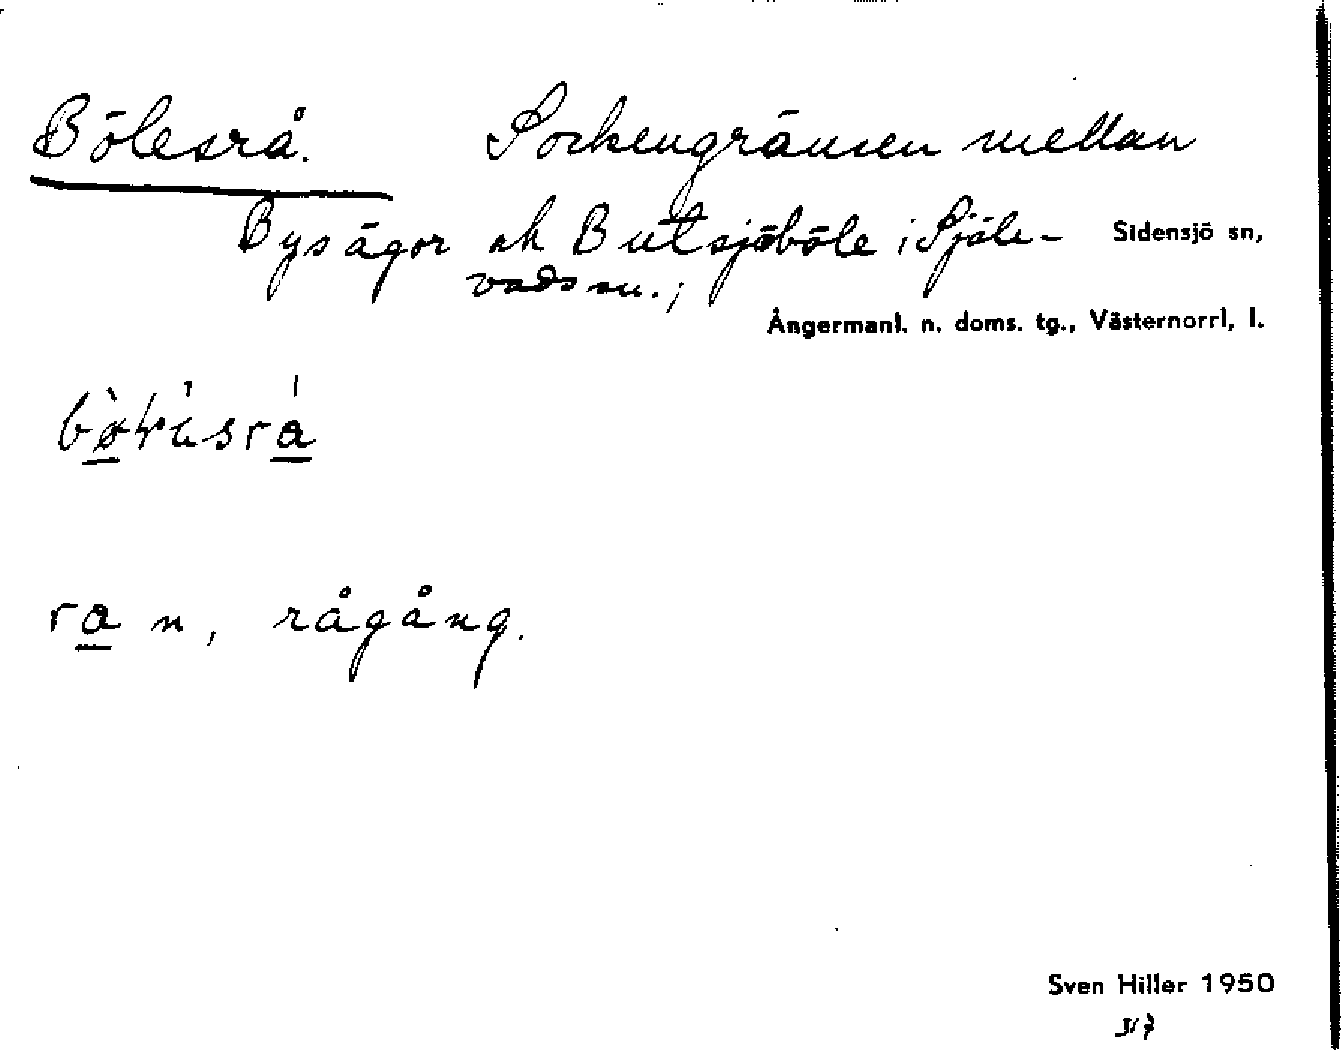 Bölesrå. Sockengränsen mellan
Bys ägor och Butsjöböle i Själe-
vads sn.;
Sidensjö sn,
Ångermanl. n. doms. tg., Västernorrl, l.
ra n, rågång.
Sven Hiller 1950